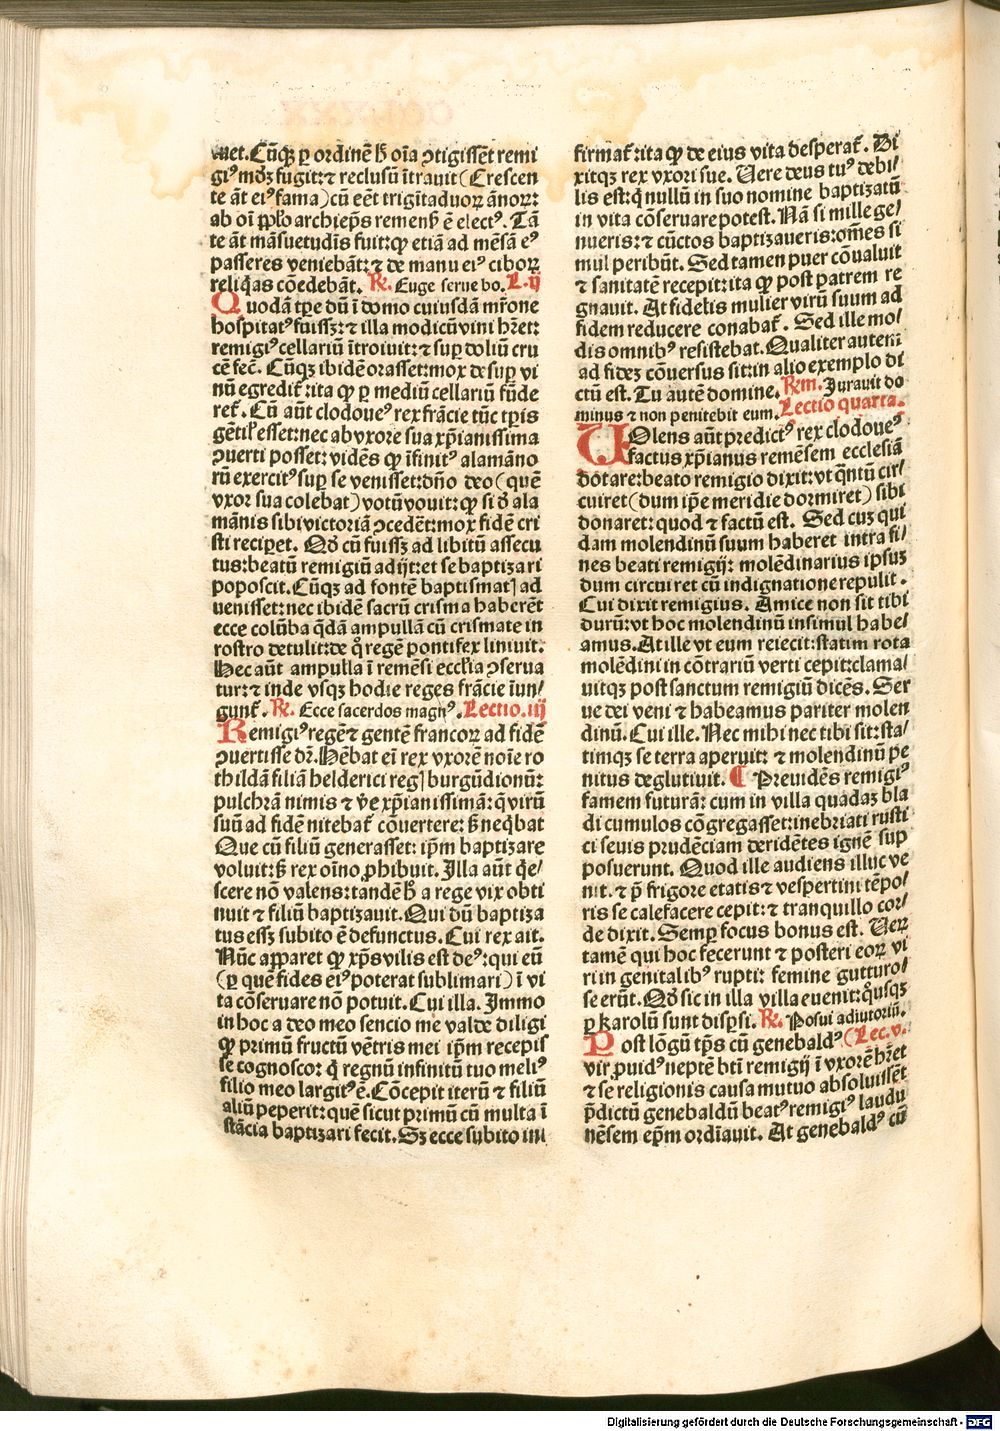 uet. Cūqꝫ ꝑ ordinē ħ oīa ꝯtigissēt remi
giꝰ mōꝫ fugit: ⁊ reclusū ītrauit (Crescen
te āt eiꝰ fama) cū eēt trigītaduoꝝ ānoꝝ:
ab oī ppl̄o archiep̄s remenẜ ē electꝰ. Tā
te āt māsuetudīs fuit: ꝙ etiā ad mēsā eꝰ
passeres veniebāt: ⁊ de manu eiꝰ ciboꝝ
reliq̄as cōedebāt. ℞. Euge serue bo. L. ij
Quodā tꝑe dū ī domo cuiusdā mr̄one
hospitatꝰ fuissꝫ: ⁊ illa modicū vini hr̄et:
remigiꝰ cellariū ītroiuit: ⁊ suꝑ doliū cru
cē fec̄. Cūqꝫ ibidē oꝛasset: mox desuꝑ vi
nū egredit᷑: ita ꝙ ꝑ mediū cellariū fūde
ret᷑. Cū aūt clodoueꝰ rex frācie tūc tꝑis
gētil̄ esset: nec ab vxore sua xp̄ianissima
ꝯuerti posset: vidēs ꝙ īfinitꝰ alamāno
rū exercitꝰ suꝑ se venisset: dn̄o deo (quē
vxor sua colebat) votū vouit: ꝙ si d̄ ala
mānis sibi victoriā ꝯcedēt: mox fidē cri
sti reciꝑet. Qđ cū fuissꝫ ad libitū assecu
tus: beatū remigiū adijt: et se baptizari
poposcit. Cūqꝫ ad fontē baptismatꝭ ad
uenisset: nec ibidē sacrū crisma haberēt
ecce colūba q̄dā ampullā cū crismate in
rostro detulit: de q̊ regē pontifex liniuit.
Hec aūt ampulla ī remēsi eccl̄ia ꝯserua
tur: ⁊ inde vsqꝫ hodie reges frācie īun/
gunt᷑. ℞. Ecce sacerdos magnꝰ. Lectio. iij
Remigiꝰ regē ⁊ gentē francoꝝ ad fidē
ꝯuertisse dr̄. Hēbat eī rex vxorē noīe ro
thildā filiā helderici regꝭ burgūdionū:
pulchrā nimis ⁊ v̄e xp̄ianissimā: q̄ virū
suū ad fidē nitebat᷑ cōuertere: ẜ neq̄bat
Que cū filiū generasset: ip̄m baptizare
voluit: ẜ rex oīno ꝓhibuit. Illa aūt q̄e/
scere nō valens: tandē ħ a rege vix obti
nuit ⁊ filiū baptizauit. Qui dū baptiza
tus essꝫ subito ē defunctus. Cui rex ait.
Nūc apparet ꝙ xp̄s vilis est deꝰ: qui eū
(ꝑ quē fides eiꝰ poterat sublimari) ī vi
ta cōseruare nō potuit. Cui illa. Immo
in hoc a deo meo sencio me valde diligi
ꝙ primū fructū vētris mei ip̄m recepis
se cognosco: q̄ regnū infinitū tuo meliꝰ
filio meo largitꝰ ē. Cōcepit iterū ⁊ filiū
aliū peperit: quē sicut primū cū multa ī
stācia baptizari fecit. Sꝫ ecce subito ini
firmat᷑: ita ꝙ de eius vita desperat᷑. Di
xitqꝫ rex vxori sue. Uere deus tuꝰ debi/
lis est: q̄ nullū in suo nomine baptizatū
in vita cōseruare potest. Nā si mille ge/
nueris: ⁊ cūctos baptizaueris: om̄es si
mul peribūt. Sed tamen puer cōualuit
⁊ sanitatē recepit: ita ꝙ post patrem re
gnauit. At fidelis mulier virū suum ad
fidem reducere conabat᷑. Sed ille mo/
dis omnibꝰ resistebat. Qualiter autem
ad fidēꝫ cōuersus sit: in alio exemplo di
ctū est. Tu autē domine. ℞m. Jurauit do
minus ⁊ non penitebit eum. Lectio quarta.
UOlens aūt predictꝰ rex clodoueꝰ
factus xp̄ianus remēsem ecclesiā
dotare: beato remigio dixit: vt q̄ntū cir/
cuiret (dum ip̄e meridie dormiret) sibi
donaret: quod ⁊ factū est. Sed cuꝫ qui
dam molendinū suum haberet intra fi/
nes beati remigij: molēdinarius ipsuꝫ
dum circuiret cū indignatione repulit.
Cui dixit remigius. Amice non sit tibi
durū: vt hoc molendinū insimul habe/
amus. At ille vt eum reiecit: statim rota
molēdini in cōtrariū verti cepit: clama/
uitqꝫ post sanctum remigiū dicēs. Ser
ue dei veni ⁊ habeamus pariter molen
dinū. Cui ille. Nec mihi nec tibi sit: sta/
timqꝫ se terra aperuit: ⁊ molendinū pe
nitus deglutiuit. ¶ Preuidēs remigiꝰ
famem futurā: cum in villa quadaꝫ bla
di cumulos cōgregasset: inebriati rusti
ci seuis prudēciam deridētes ignē sup
posuerunt. Quod ille audiens illuc ve
nit. ⁊ p̄ frigore etatis ⁊ vespertini tēpo/
ris se calefacere cepit: ⁊ tranquillo cor/
de dixit. Semꝑ focus bonus est. Ueꝝ
tamē qui hoc fecerunt ⁊ posteri eoꝝ vi
ri in genitalibꝰ rupti: femine gutturo/
se erūt. Qđ sic in illa villa euenit: q̊usqꝫ
ꝑ karolū sunt disꝑsi. ℞. Posui adiutoriū.
Post lōgū tꝑs cū genebaldꝰ (Lec. v.
vir ꝓuidꝰ neptē bt̄i remigij ī vxorē hr̄et
⁊ se religionis causa mutuo absoluissēt
p̄dictū genebaldū beatꝰ remigiꝰ laudu
nēsem ep̄m ordīauit. At genebaldꝰ cū
Digitalisierung gefördert durch die Deutsche Forschungsgemeinschaft - DFG